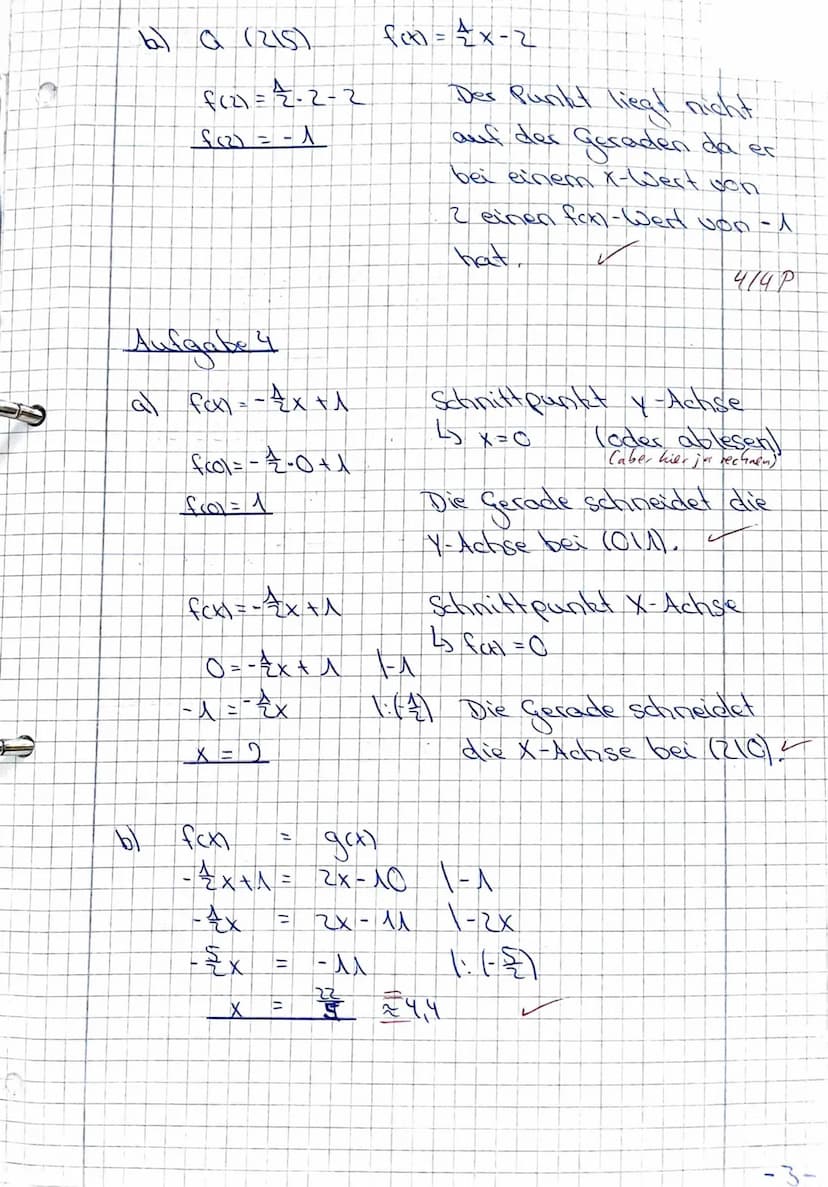 b) Q (2|5) f(x) = 1/2 x - 2
f(2) = 1/2 · 2 - 2
f(2) = -1
Der Punkt liegt nicht
auf der Geraden da er
bei einem x-Wert von
2 einen f(x)-Wert von -1
hat. ✓
4/4 P
Aufgabe 4
a) f(x) = -1/2 x + 1 Schnittpunkt y-Achse
↳ x=0 (oder ablesen)
(aber hier ja rechnen)
f(0) = -1/2 · 0 + 1
f(0) = 1
Die Gerade schneidet die
Y-Achse bei (0|1). ✓
f(x) = -1/2 x + 1 Schnittpunkt X-Achse
↳ f(x) = 0
0 = -1/2 x + 1 |-1
-1 = -1/2 x |:(-1/2)
x = 2
Die Gerade schneidet
die X-Achse bei (2|0). ✓
b) f(x) = g(x)
-1/2 x + 1 = 2x - 10 |-1
-1/2 x = 2x - 11 |-2x
-5/2 x = -11 |:(-5/2)
x = 22/5 = ≈ 4,4 ✓
-3-